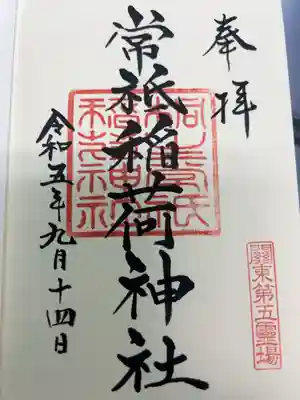 奉拝
常祇稲荷神社
令和五年九月十四日
關東第五霊場